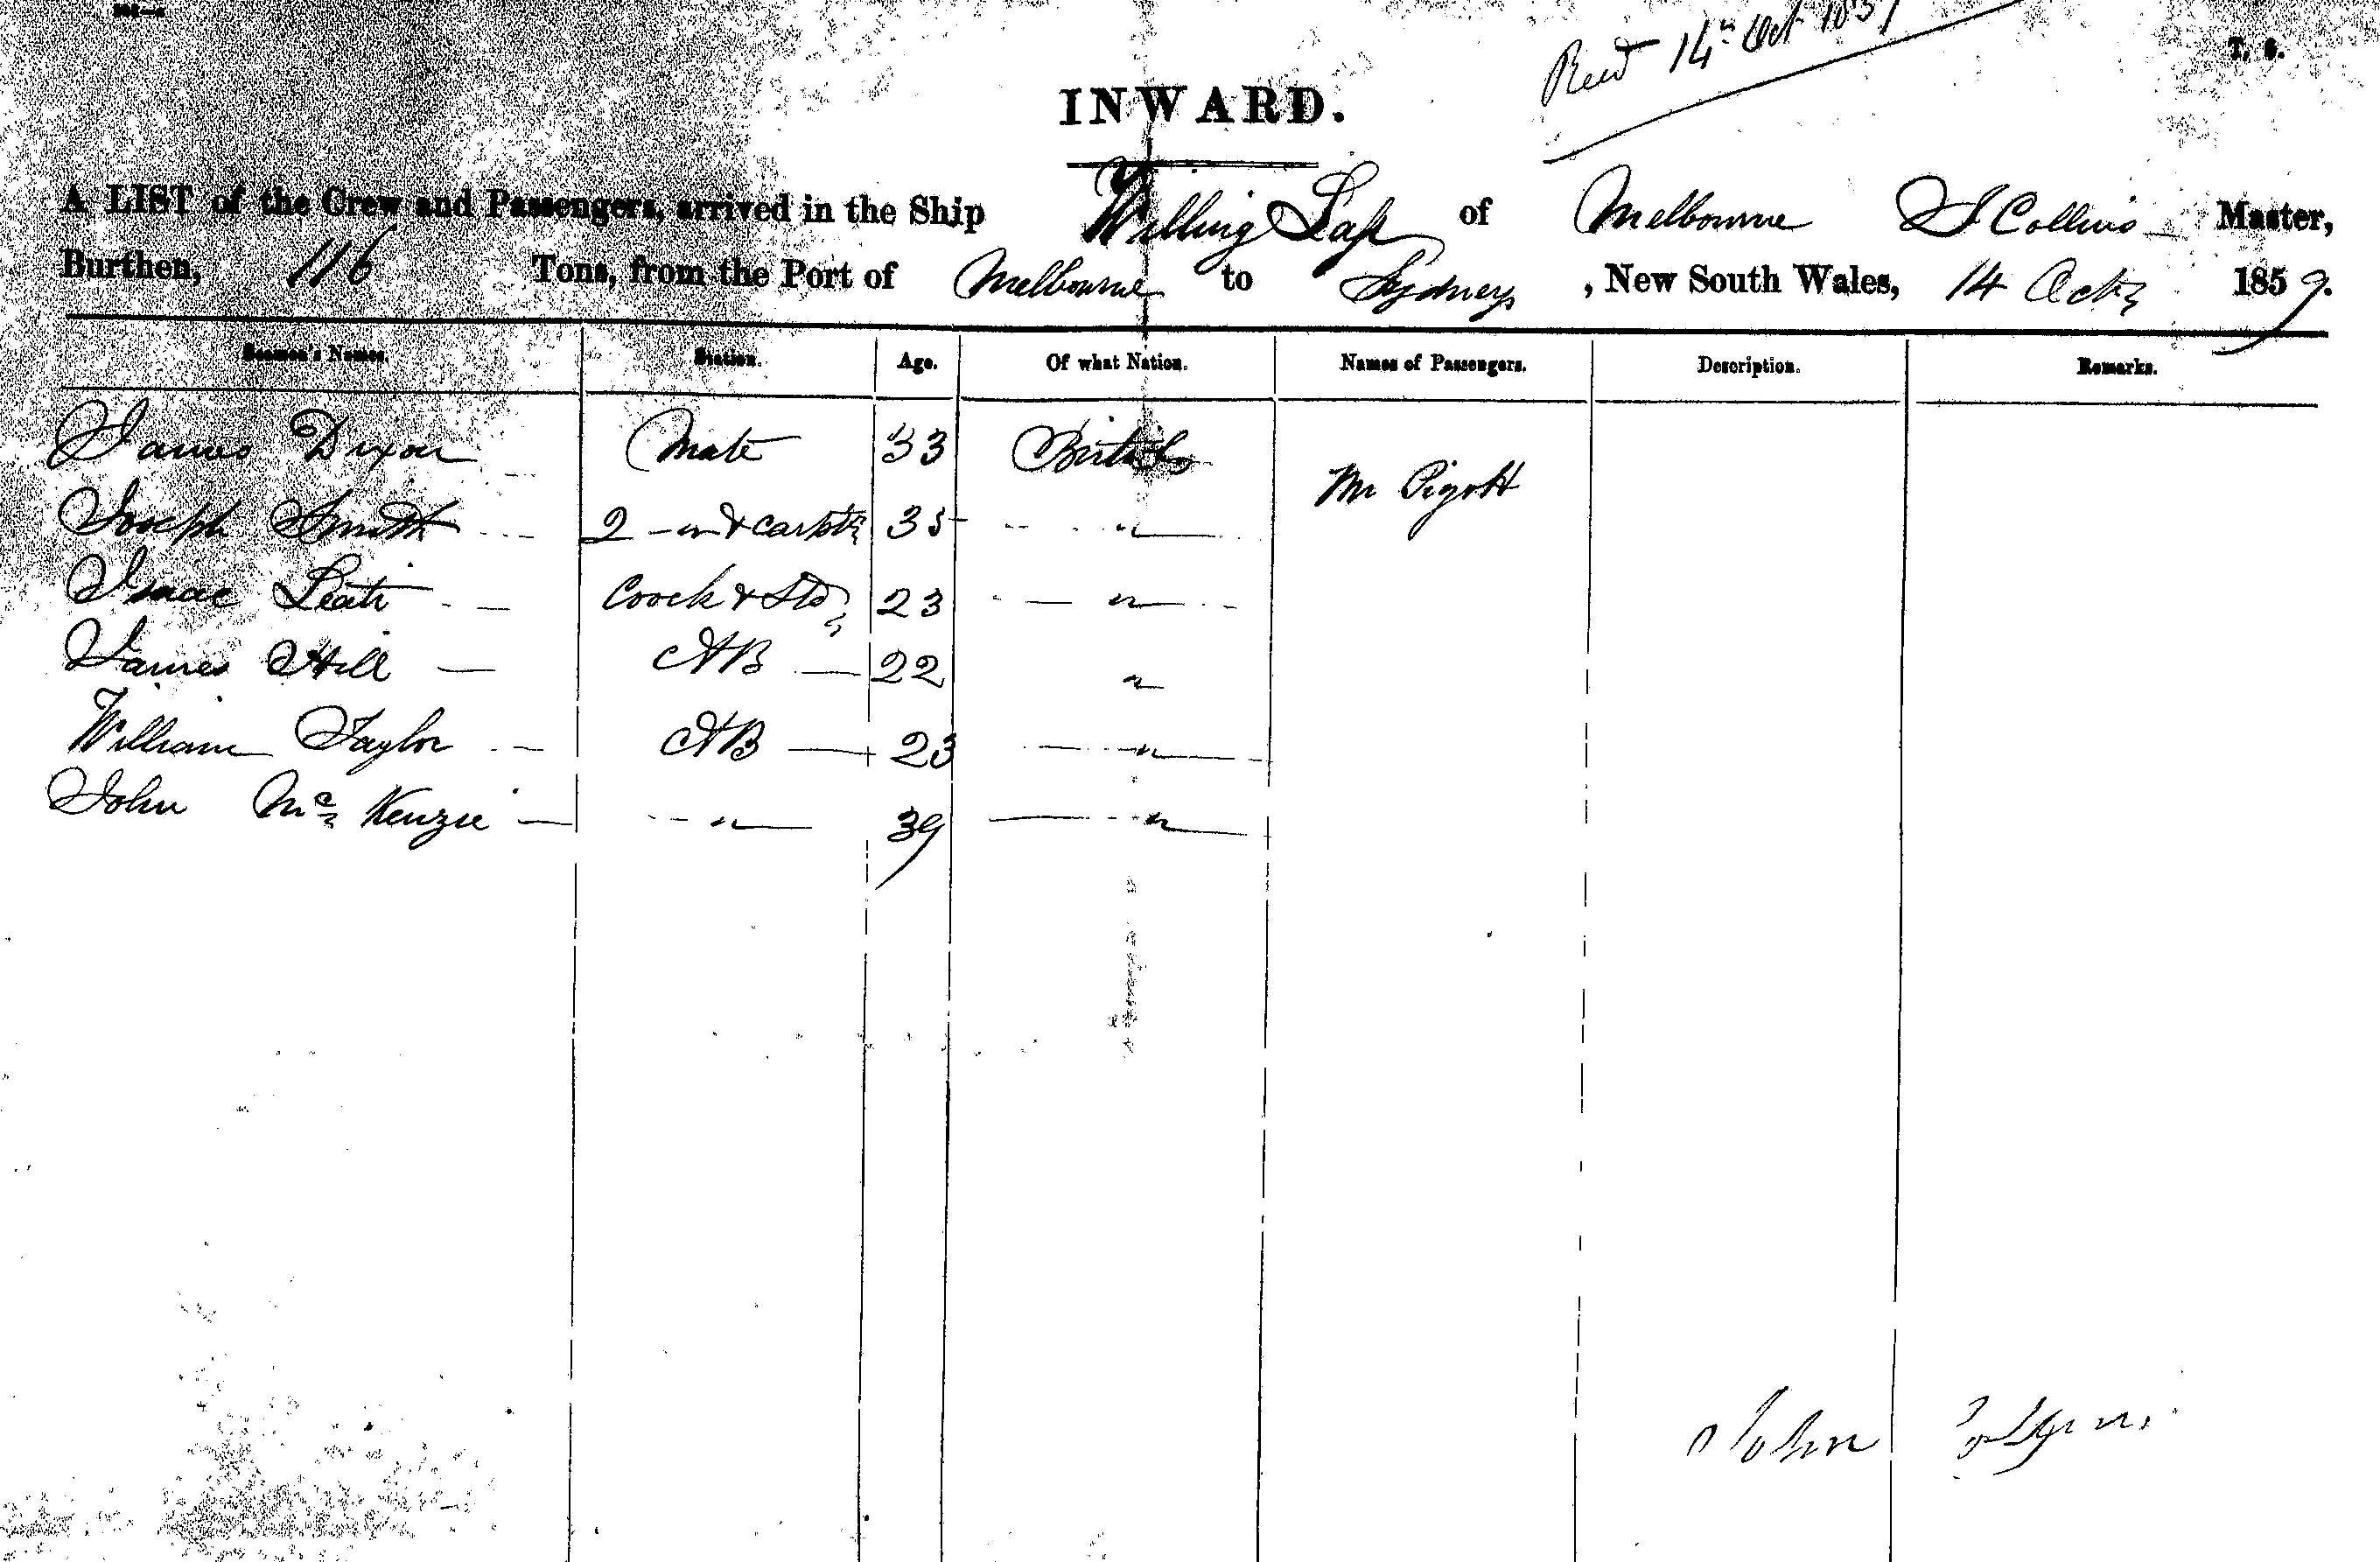 Recd 14th Oct 1859
T. S.
INWARD.
A LIST of the Crew and Passengers, arrived in the Ship Willing Lass of Melbourne J Collins Master,
Burthen, 116 Tons, from the Port of Melbourne to Sydney, New South Wales, 14 Octr 1859.
Seamen's Names. Station. Age. Of what Nation. Names of Passengers. Description. Remarks.
James Dixon Mate 33 British
Mr Pigott
Joseph Smith 2 - " & Carptr 35 "
Isaac Coock & Std 23 "
James Hill — AB — 22 "
William Taylor — AB — 23 "
John Mc Kenzie — " — 39 "
John